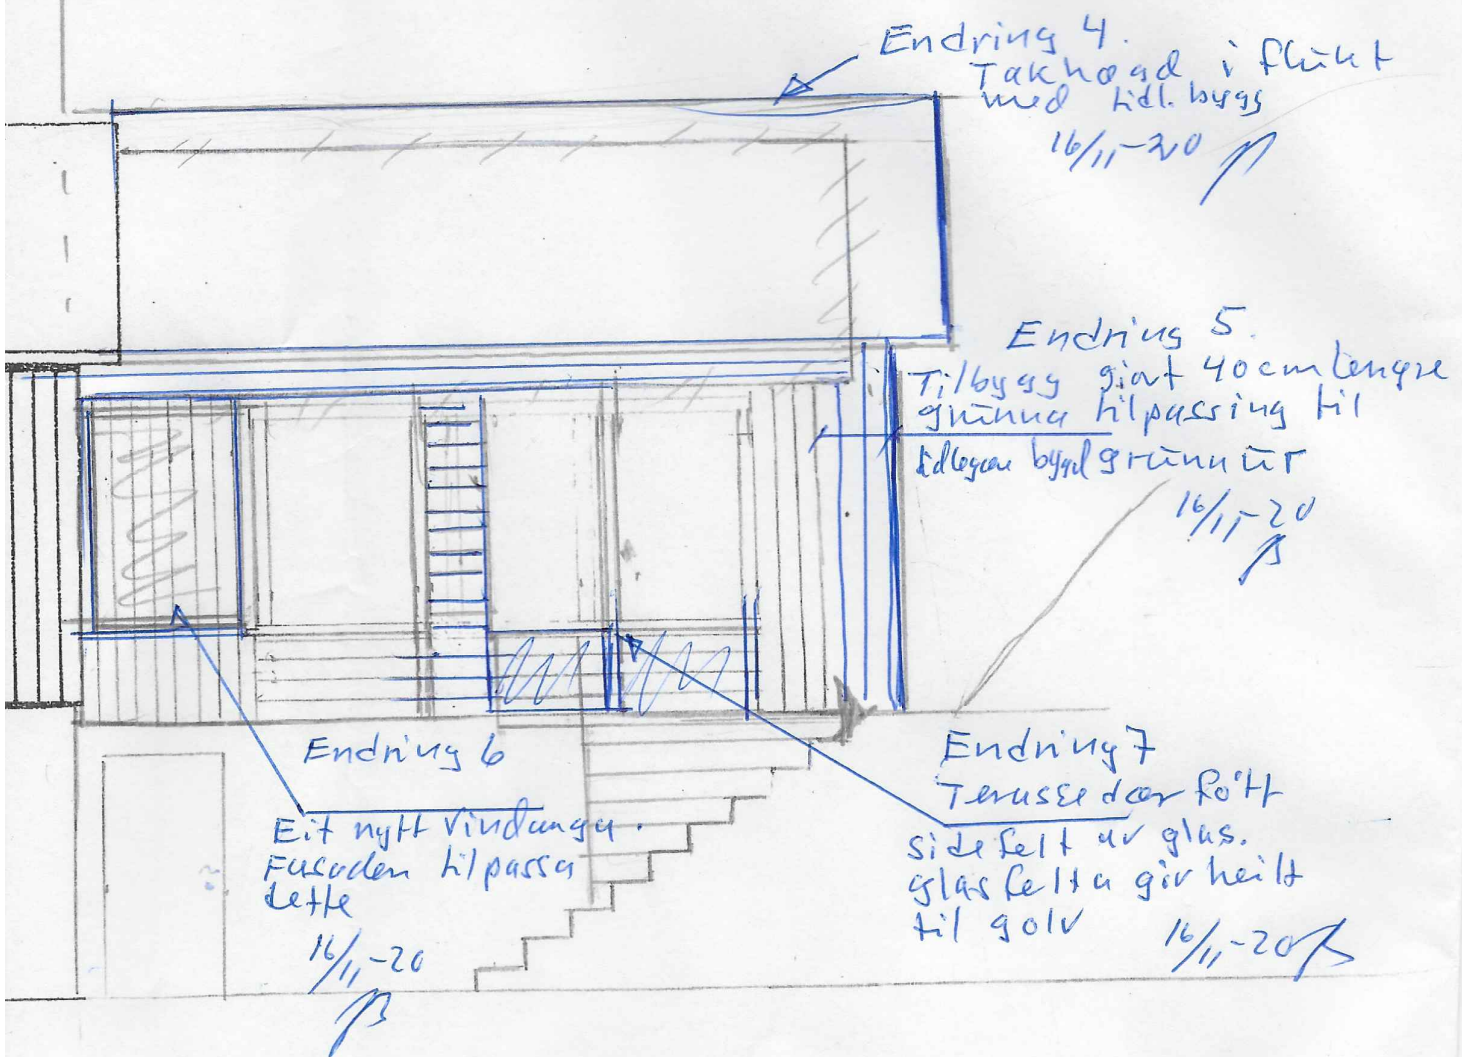 Endring 4.
Takhøgd i flukt
med tidl. bygg
16/11-20
Endring 5.
Tilbygg gjort 40cm lengre
grunna tilpassing til
bygd grunnur
16/11-20
Endring 6
Eit nytt vindauga.
Fasaden tilpassa
dette
16/11-20
Endring 7
Terassedør fått
sidefelt av glas.
glasfelta går heilt
til golv
16/11-20